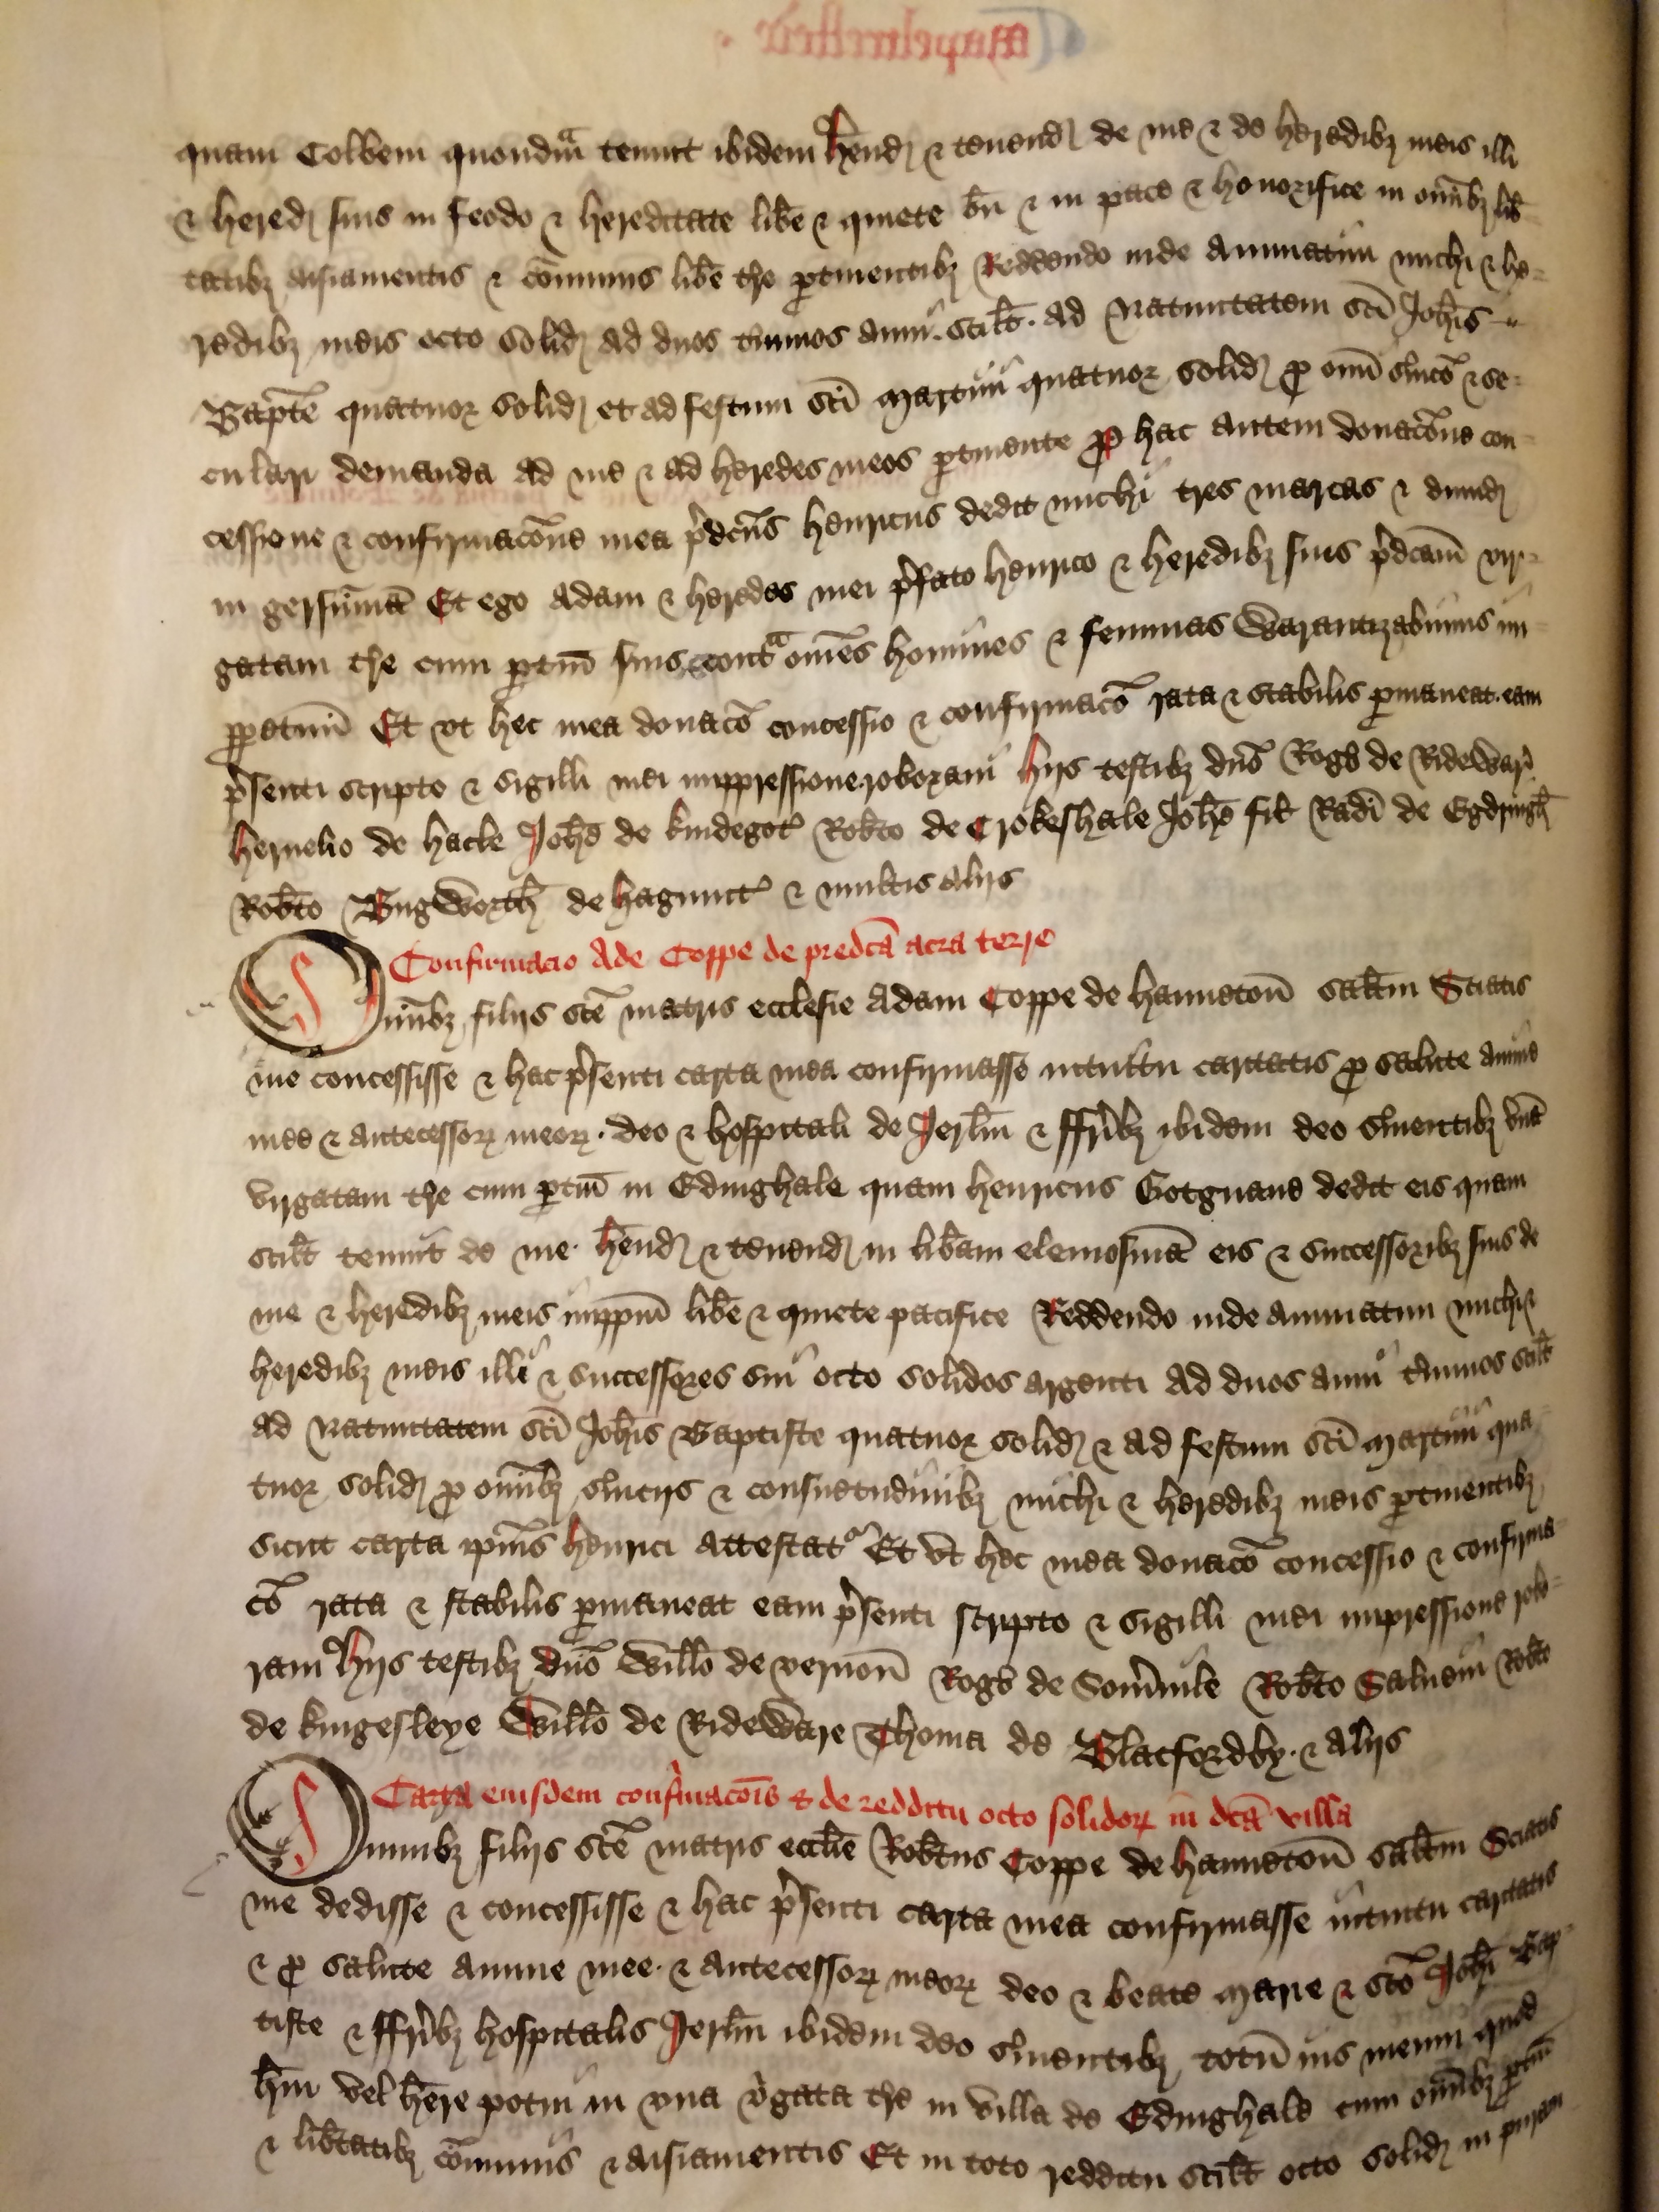 quam Colbem quondā tenuit ibidem hend̄ ⁊ tenend̄ de me ⁊ de heredibȝ meis illi
⁊ hered̄ suis in feodo ⁊ hereditate lib̄e ⁊ quiete bn̄ ⁊ in pace ⁊ honorifice in om̄ibȝ lib̄
tatibȝ aisiamentis ⁊ cōmunis lib̄e tr̄e ꝑtinentibȝ Reddendo inde Annuatim michi ⁊ he=
redibȝ meis octo solid̄ ad duos t̄minos anni. scilt̄. ad Natiuitatem sc̄i Joh̄is
Bapt̄e quatuor solid̄ et ad festum sc̄i Martini quatuor solid̄ ꝓ om̄i s̄uico ⁊ se=
culari demanda ad me ⁊ ad heredes meos ꝑtinente ꝓ hac autem donacōne con
cessione ⁊ confirmacōne mea p̄dc̄us henricus dedit michi tres marcas ⁊ dimid̄
in gersumā Et ego Adam ⁊ heredes mei p̄fato henrico ⁊ heredibȝ suis p̄dc̄am vir=
gatam tr̄e cum ꝑtin̄ suis contᵃ om̄es homines ⁊ feminas Warantizabimus in
ꝑpetuū Et vt hec mea donacō concessio ⁊ confirmacō rata ⁊ stabilis ꝑmaneat. eam
p̄senti scripto ⁊ sigilli mei impressione roboraui hijs testibȝ dn̄o Roḡo de RideWar̄
heruelio de hacle Joh̄e de kindegot̄ Rob̄to de Crokeshale Joh̄e fil̄ Rad̄i de Egdringh̄
Rob̄to BugWorth̄ de hagnint̄ ⁊ multis alijs
Confirmacio Ade Coppe de predc̄a acra terre
Om̄ibȝ filijs sc̄e matris ecclesie Adam Coppe de hanneton̄ salt̄m Sciatis
me concessisse ⁊ hac p̄senti carta mea confirmasse intuitu caritatis ꝓ salute anime
mee ⁊ antecessorꝝ meorꝝ. deo ⁊ hospitali de Jerlm̄ ⁊ ffr̄ibȝ ibidem deo s̄uientibȝ vnā
virgatam tr̄e cum ꝑtin̄ in Edinghale quam henricus Gotgnane dedit eis quam
scilt̄ tenuit de me. hend̄ ⁊ tenend̄ in lib̄am elemosinā eis ⁊ successoribȝ suis de
me ⁊ heredibȝ meis inꝑpm̄ lib̄e ⁊ quiete pacifice Reddendo inde annuatim michi ⁊
heredibȝ meis illi ⁊ successores sui octo solidos argenti ad duos anni t̄minos scilt̄
ad Natiuitatem sc̄i Joh̄is Baptiste quatuor solid̄ ⁊ ad festum sc̄i Martini qua
tuor solid̄ ꝓ om̄ibȝ s̄uicijs ⁊ consuetudinibȝ michi ⁊ heredibȝ meis ꝑtinentibȝ
sicut carta ip̄ius henrici attestat Et vt hec mea donacō concessio ⁊ confirma
cō rata ⁊ stabilis ꝑmaneat eam p̄senti scripto ⁊ sigilli mei impressione robo=
raui hijs testibȝ dn̄o Will̄o de vernon̄ Roḡo de Som̄uile Rob̄to Saluein Rob̄to
de kingesleye Will̄o de RideWare Thoma de Blacfordby. ⁊ alijs
Carta eiusdem confirmacōis ⁊ de redditu octo solidorꝝ in dc̄a villa
Omnibȝ filijs sc̄e matris eccl̄ie Rob̄tus Coppe de hanneton̄ salt̄m Sciatis
me dedisse ⁊ concessisse ⁊ hac p̄senti carta mea confirmasse intuitu caritatis
⁊ ꝓ salute anime mee. ⁊ antecessorꝝ meorꝝ deo ⁊ beate Marie ⁊ sc̄o Joh̄i Bap
tiste ⁊ ffr̄ibȝ hospitalis Jerlm̄ ibidem deo s̄uientibȝ totū ius meum quod
h̄ui vel h̄ere potui in vna v̄gata tr̄e in villa de Edinghale cum om̄ibȝ ꝑtin̄
⁊ lib̄tatibȝ cōmunis ⁊ aisiamentis Et in toto redditu scilt̄ octo solid̄ in puram